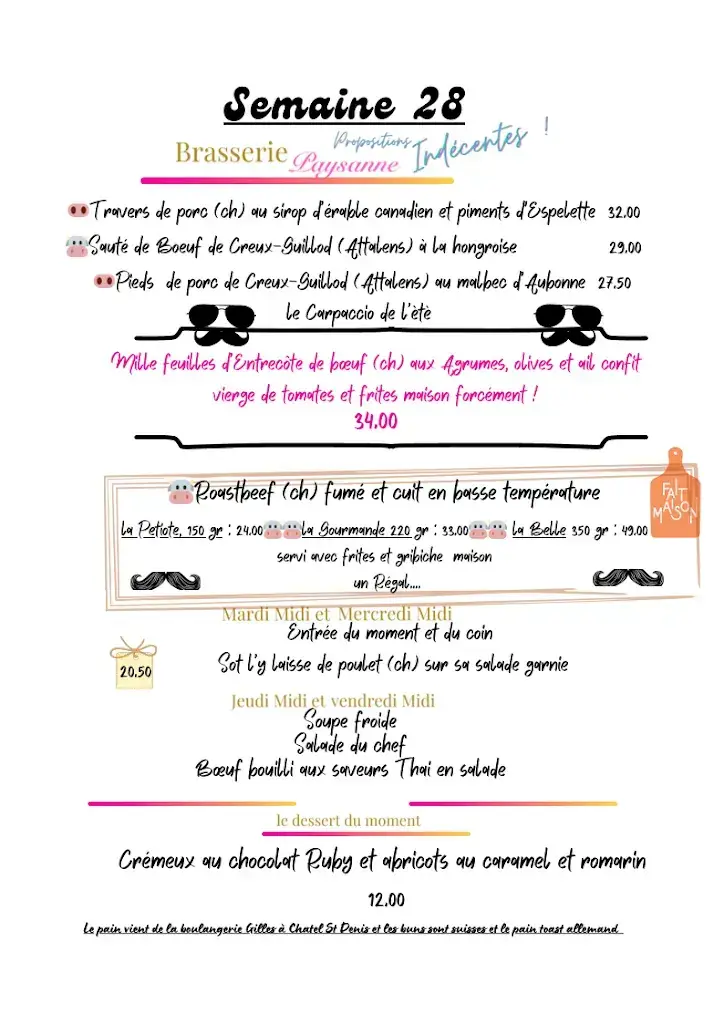 Semaine 28
Brasserie Paysanne Propositions Indécentes !
Travers de porc (ch) au sirop d'érable canadien et piments d'Espelette 32.00
Sauté de Boeuf de Creux-Guillod (Attalens) à la hongroise 29.00
Pieds de porc de Creux-Guillod (Attalens) au malbec d'Aubonne 27.50
le Carpaccio de l'ètè
Mille feuilles d'Entrecôte de bœuf (ch) aux Agrumes, olives et ail confit
vierge de tomates et frites maison forcément !
34.00
Roastbeef (ch) fumé et cuit en basse température
FAIT
MAISON
la Petiote, 150 gr : 24.00 la Gourmande 220 gr : 33.00 la Belle 350 gr : 49.00
servi avec frites et gribiche maison
un Régal....
Mardi Midi et Mercredi Midi
Entrée du moment et du coin
20.50
Sot l'y laisse de poulet (ch) sur sa salade garnie
Jeudi Midi et vendredi Midi
Soupe froide
Salade du chef
Bœuf bouilli aux saveurs Thai en salade
le dessert du moment
Crémeux au chocolat Ruby et abricots au caramel et romarin
12.00
Le pain vient de la boulangerie Gilles à Chatel St Denis et les buns sont suisses et le pain toast allemand